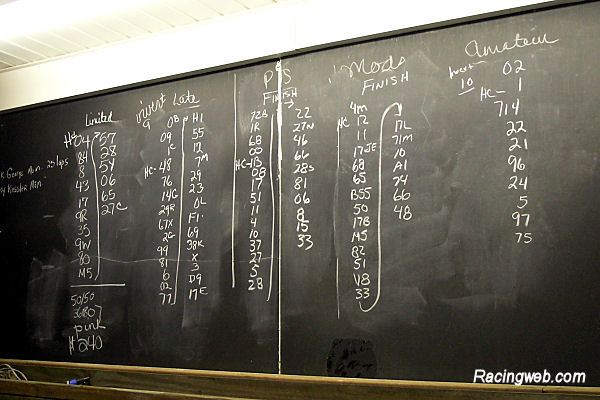 Limited
04
84
8
43
17
9R
35
9W
80
M5
57
28
54
06
65
27C
50/50
36180
pink
#240
invert
9
Late
0B
09
1C
HC-48
76
14G
29R
67X
2C
99
81
6
02
77
H1
55
12
7M
29
23
0L
F1
69
38K
X
3
D9
17E
PS
FINISH
72B
1R
68
00
HC-13
08
17
51
11
4
10
37
27
5
28
22
27N
46
66
28S
81
06
8
15
33
Mods
FINISH
4M
HC 12
11
17JE
68
65
B55
50
17B
M5
82
51
V8
33
17L
71M
10
A1
74
66
48
Amateur
Invert
10
02
HC-1
714
22
21
96
24
5
97
75
Racingweb.com